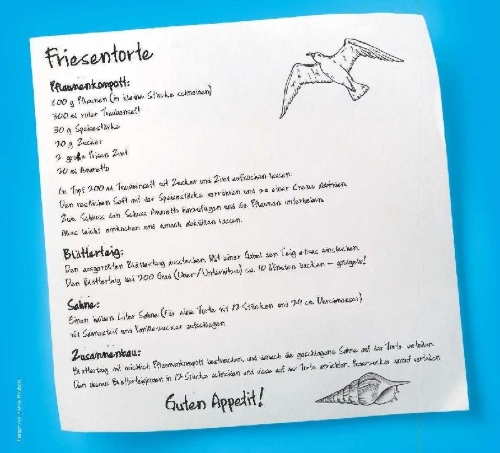 Friesentorte
Pflaumenkompott:
600 g Pflaumen (in kleine Stücke schneiden)
300 ml roter Traubensaft
30 g Speisestärke
70 g Zucker
2 große Prisen Zimt
20 ml Amaretto
Im Topf 200 ml Traubensaft mit Zucker und Zimt aufkochen lassen.
Den restlichen Saft mit der Speisestärke verrühren und zu einer Creme
Zum Schluss den Schuss Amaretto hinzufügen und die Pflaumen unterheben.
Alles leicht einkochen und danach abkühlen lassen.
Blätterteig:
Den ausgerollten Blätterteig ausstechen. Mit einer Gabel den Teig etwas einstechen.
Den Blätterteig bei 200 Grad (Ober-/Unterhitze) ca. 10 Minuten backen – goldgelb!
Sahne:
Einen halben Liter Sahne (für eine Torte mit 12 Stücken und 24 cm Durchmesser)
mit Sahnesteif und Vanillezucker aufschlagen.
Zusammenbau:
Blätterteig mit reichlich Pflaumenkompott bestreichen, und danach die geschlagene Sahne auf der Torte verteilen.
Den oberen Blätterteigboden in 12 Stücke schneiden und diese auf der Torte anrichten. Puderzucker darauf verteilen.
Guten Appetit!